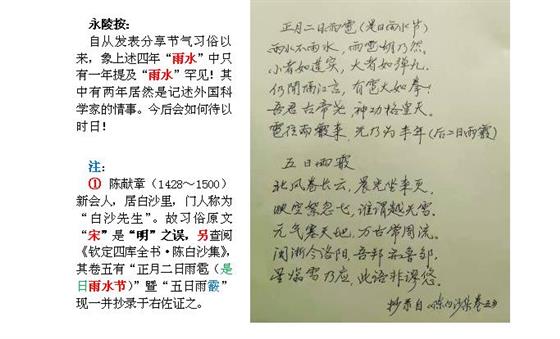 永陵按：
自从发表分享节气习俗以
来，象上述四年“雨水”中只
有一年提及“雨水”罕见！其
中有两年居然是记述外国科
学家的情事。今后会如何待以
时日！
注：
① 陈献章（1428～1500）
新会人，居白沙里，门人称为
“白沙先生”。故习俗原文
“宋”是“明”之误，另查阅
《钦定四库全书·陈白沙集》，
其卷五有“正月二日雨雹（是
日雨水节）”暨“五日雨霰”
现一并抄录于右佐证之。
正月二日雨雹（是日雨水节）
雨水不雨水，雨雹胡乃然。
小者如莲实，大者如弹丸。
仍闻雨江言，有雹大如拳！
吾君古帝尧，神功格皇天。
雹往雨霰来，允乃为丰年（后二日雨霰）
五日雨霰
北风卷长云，晨光坐来灭。
映空絮忽飞，谁谓越无雪。
元气塞天地，万古常周流。
闽浙今洛阳，吾邦亦鲁邹。
星临雪乃应，此语非谬悠。
抄录自《陈白沙集卷五》